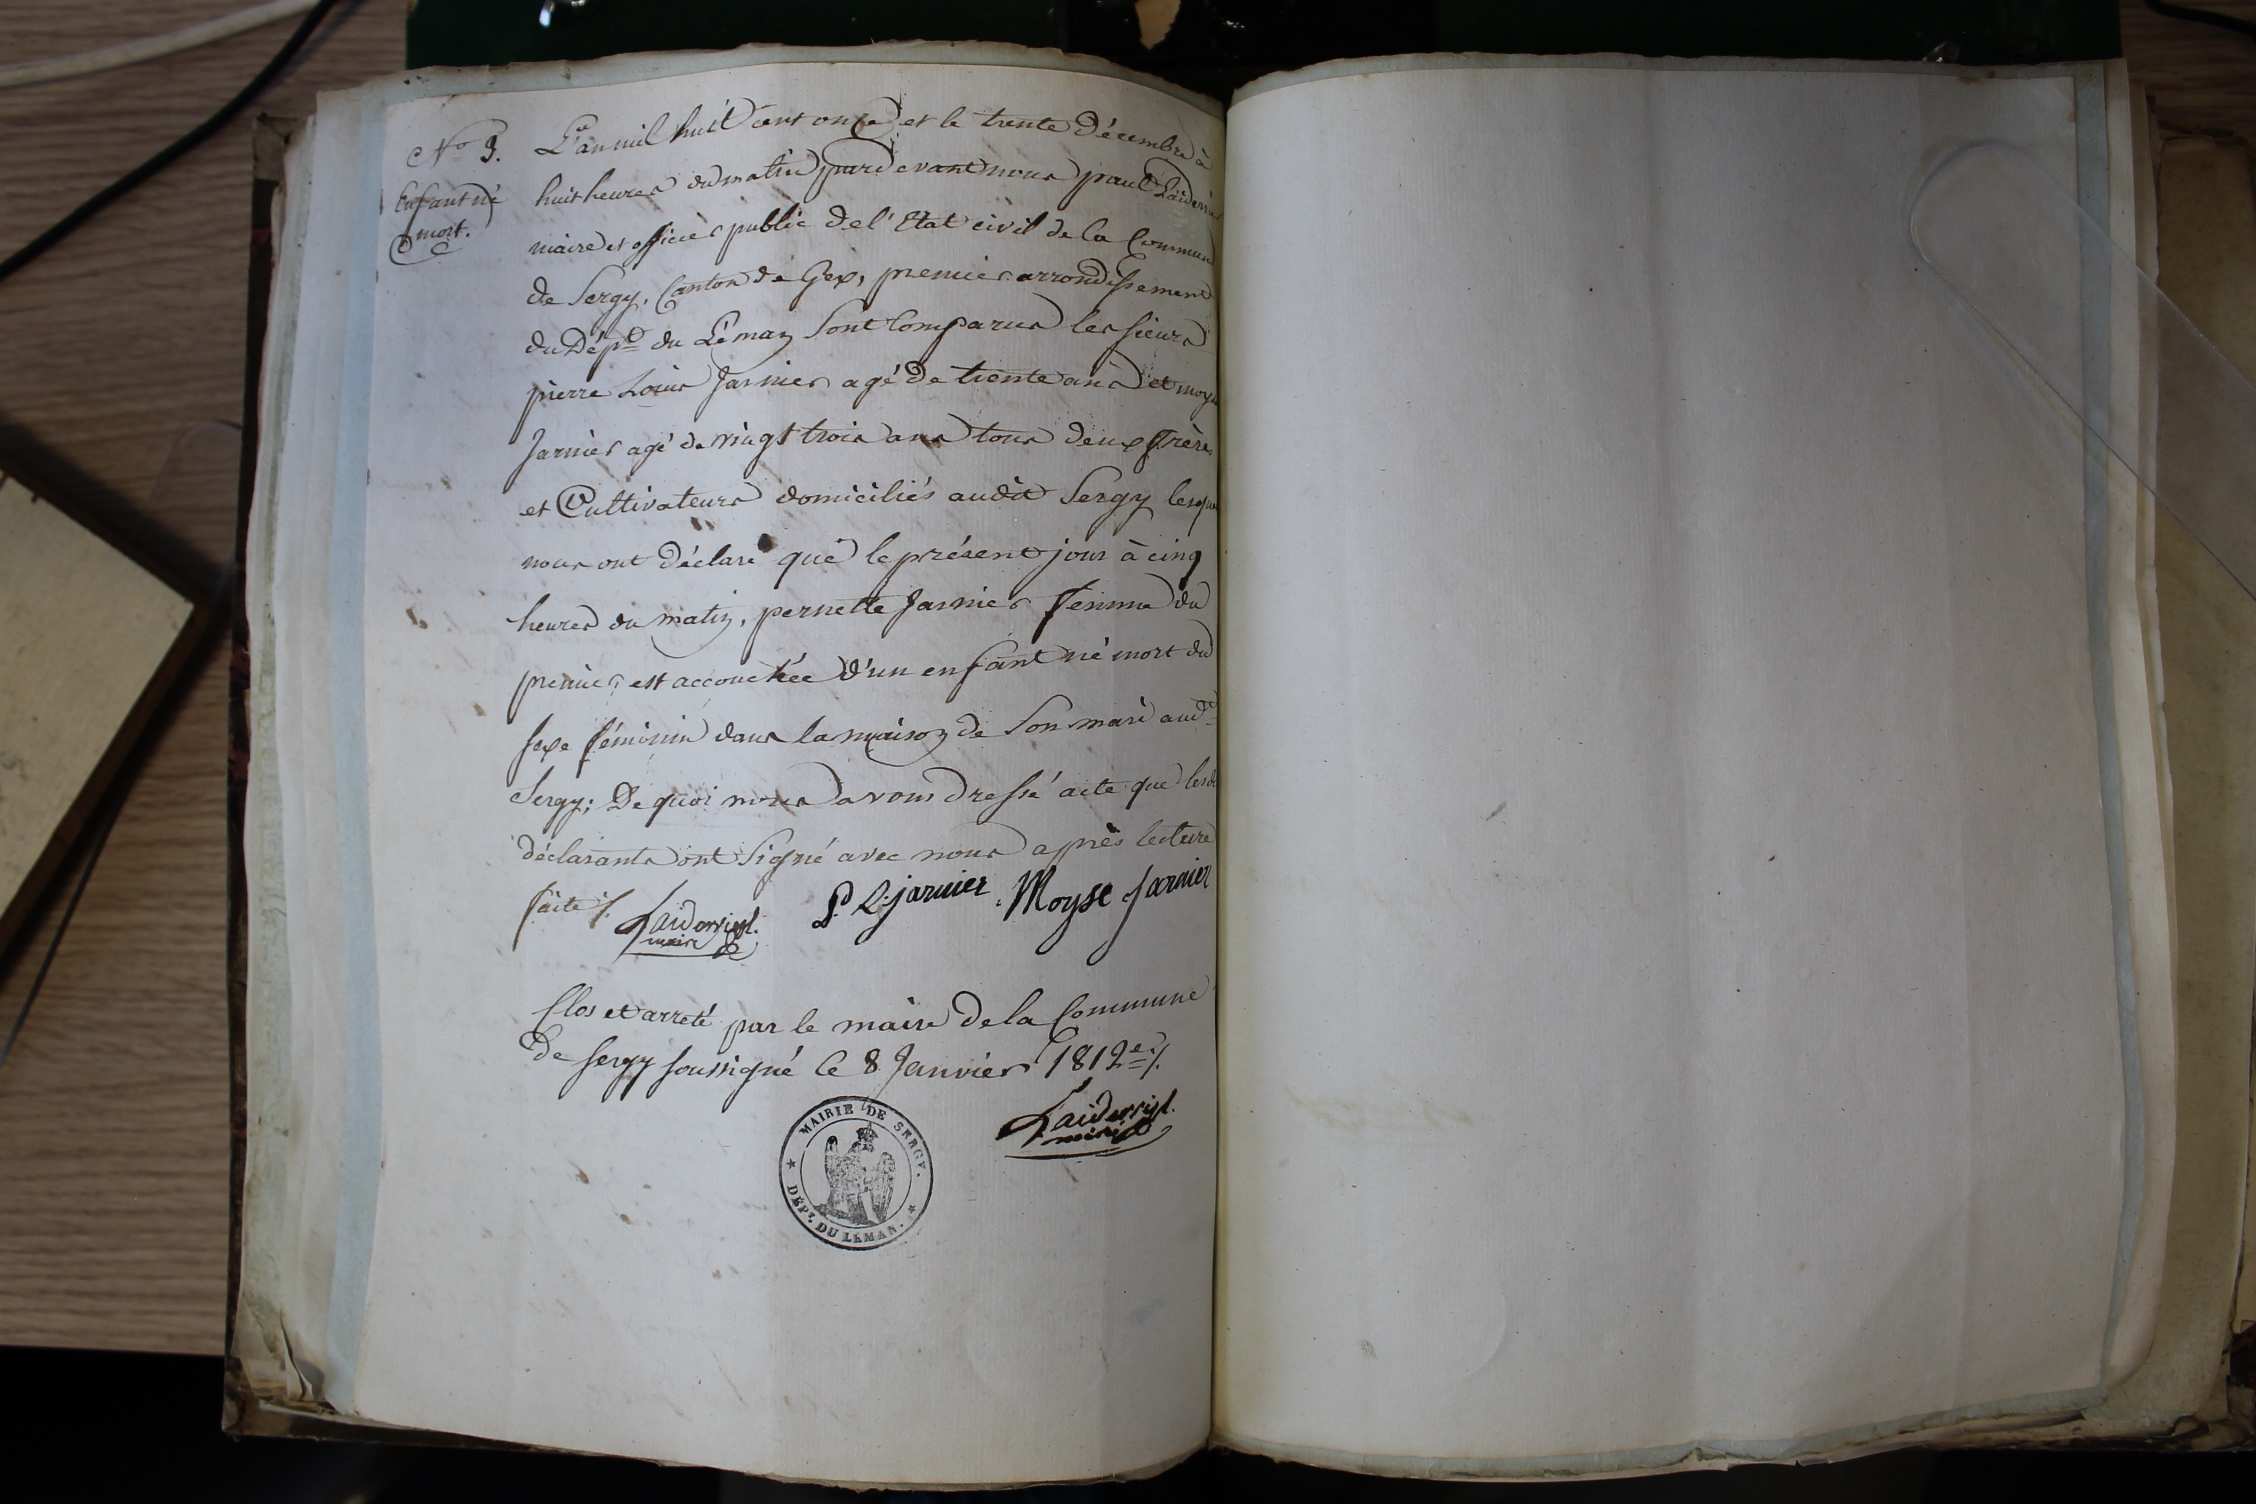 N.o 9.
Enfant né
mort.
L'an mil huit cent onze et le trente Décembre à
huit heures du matin pardevant nous paul
maire et officier public de l'Etat civil de la Commune
de Sergy, Canton de Gex, premier arrondissement
du Dép.t du Léman Sont Comparus les sieurs
pierre Louis Jarnier agé de trente ans et moyse
Jarnier agé de vingt trois ans tous deux frères
et Cultivateurs domiciliés audit Sergy lesquels
nous ont déclaré que le présent jour à cinq
heures du matin, pernette Jarnier femme du
premier, est accouchée d'un enfant né mort du
sexe féminin dans la maison de Son mari aud.t
Sergy; De quoi nous avons dressé acte que lesd.
déclarants ont Signé avec nous après lecture
faite ./.
maire
P. L. jarnier Moyse Jarnier
Clos et arreté par le maire de la Commune
de Sergy soussigné le 8 Janvier 1812 ./.
maire
MAIRIE DE SERGY.
DÉPT. DU LÉMAN.